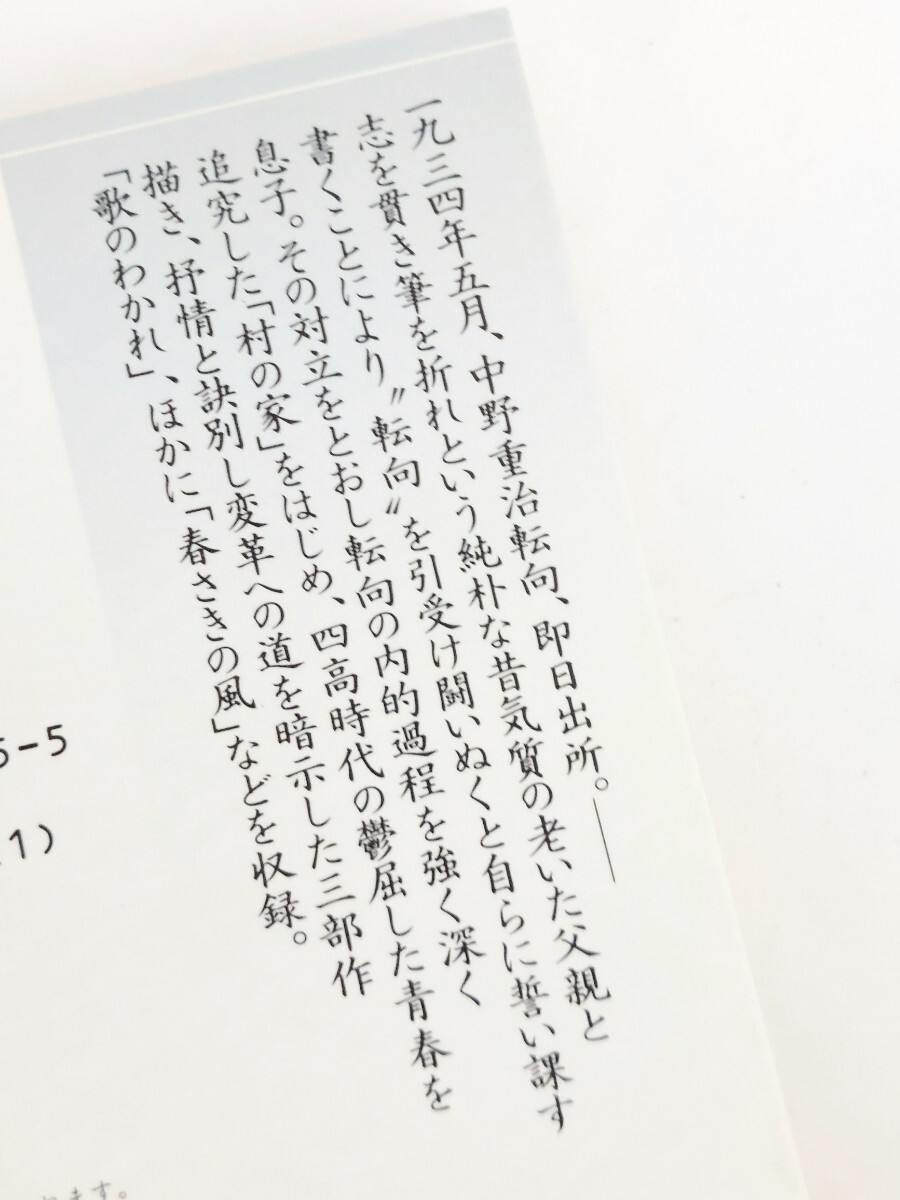 一九三四年五月、中野重治転向、即日出所。――
志を貫き筆を折れという純朴な昔気質の老いた父親と
書くことにより〝転向〟を引受け闘いぬくと自らに誓い課す
息子。その対立をとおし転向の内的過程を強く深く
追究した「村の家」をはじめ、四高時代の鬱屈した青春を
描き、抒情と訣別し変革への道を暗示した三部作
「歌のわかれ」、ほかに「春さきの風」などを収録。
5-5
1)
ます。